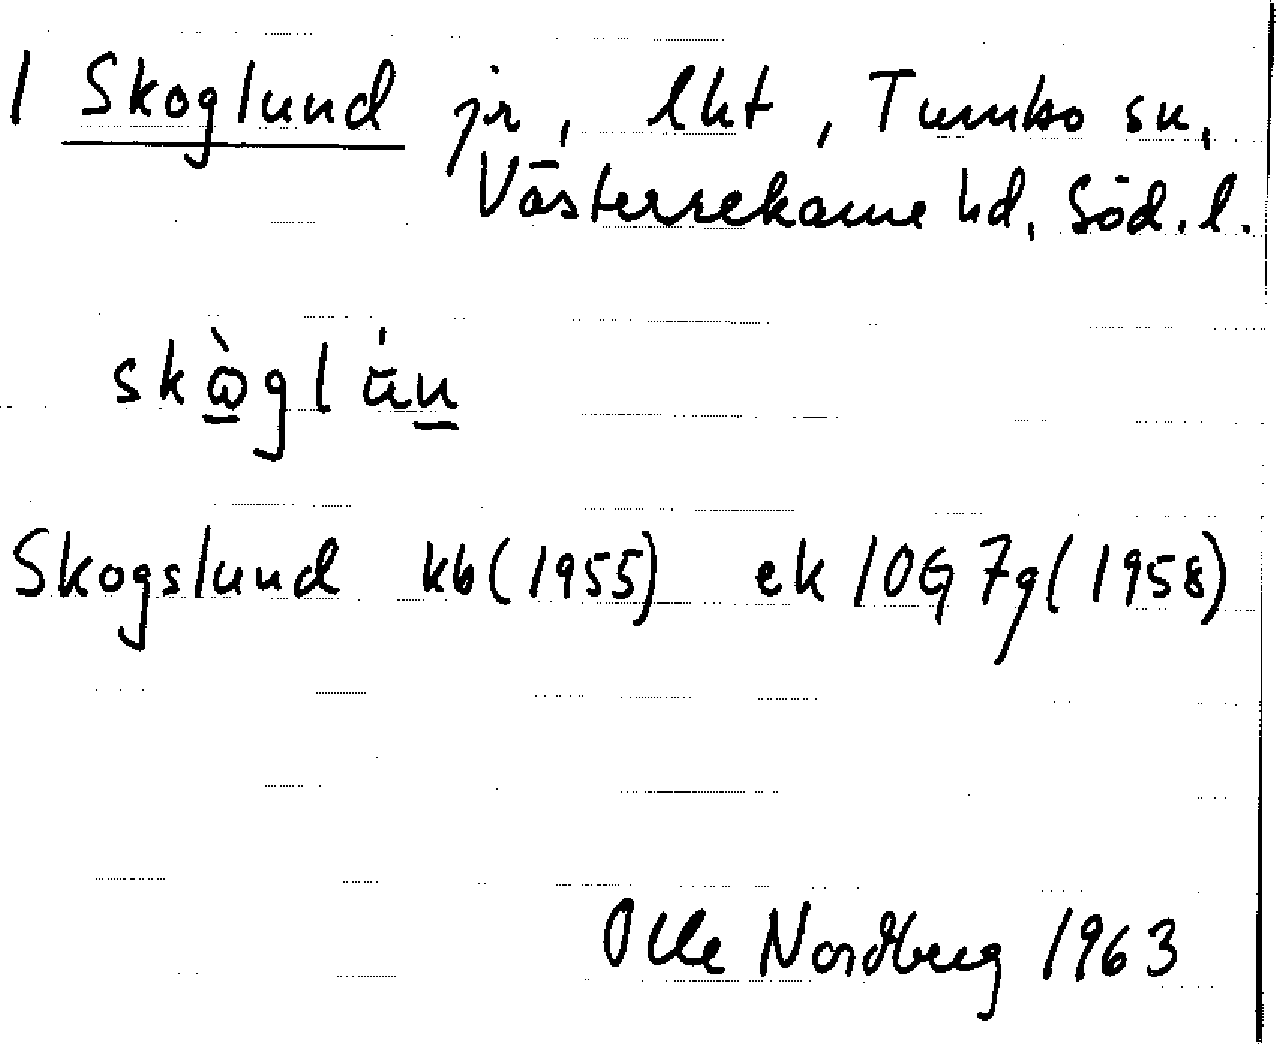 1 Skoglund jr, lht, Tumbo sn,
Västerrekarne hd, Söd. l.
skòglún
Skogslund kb (1955) ek 10G 7g (1958)
Olle Nordberg 1963